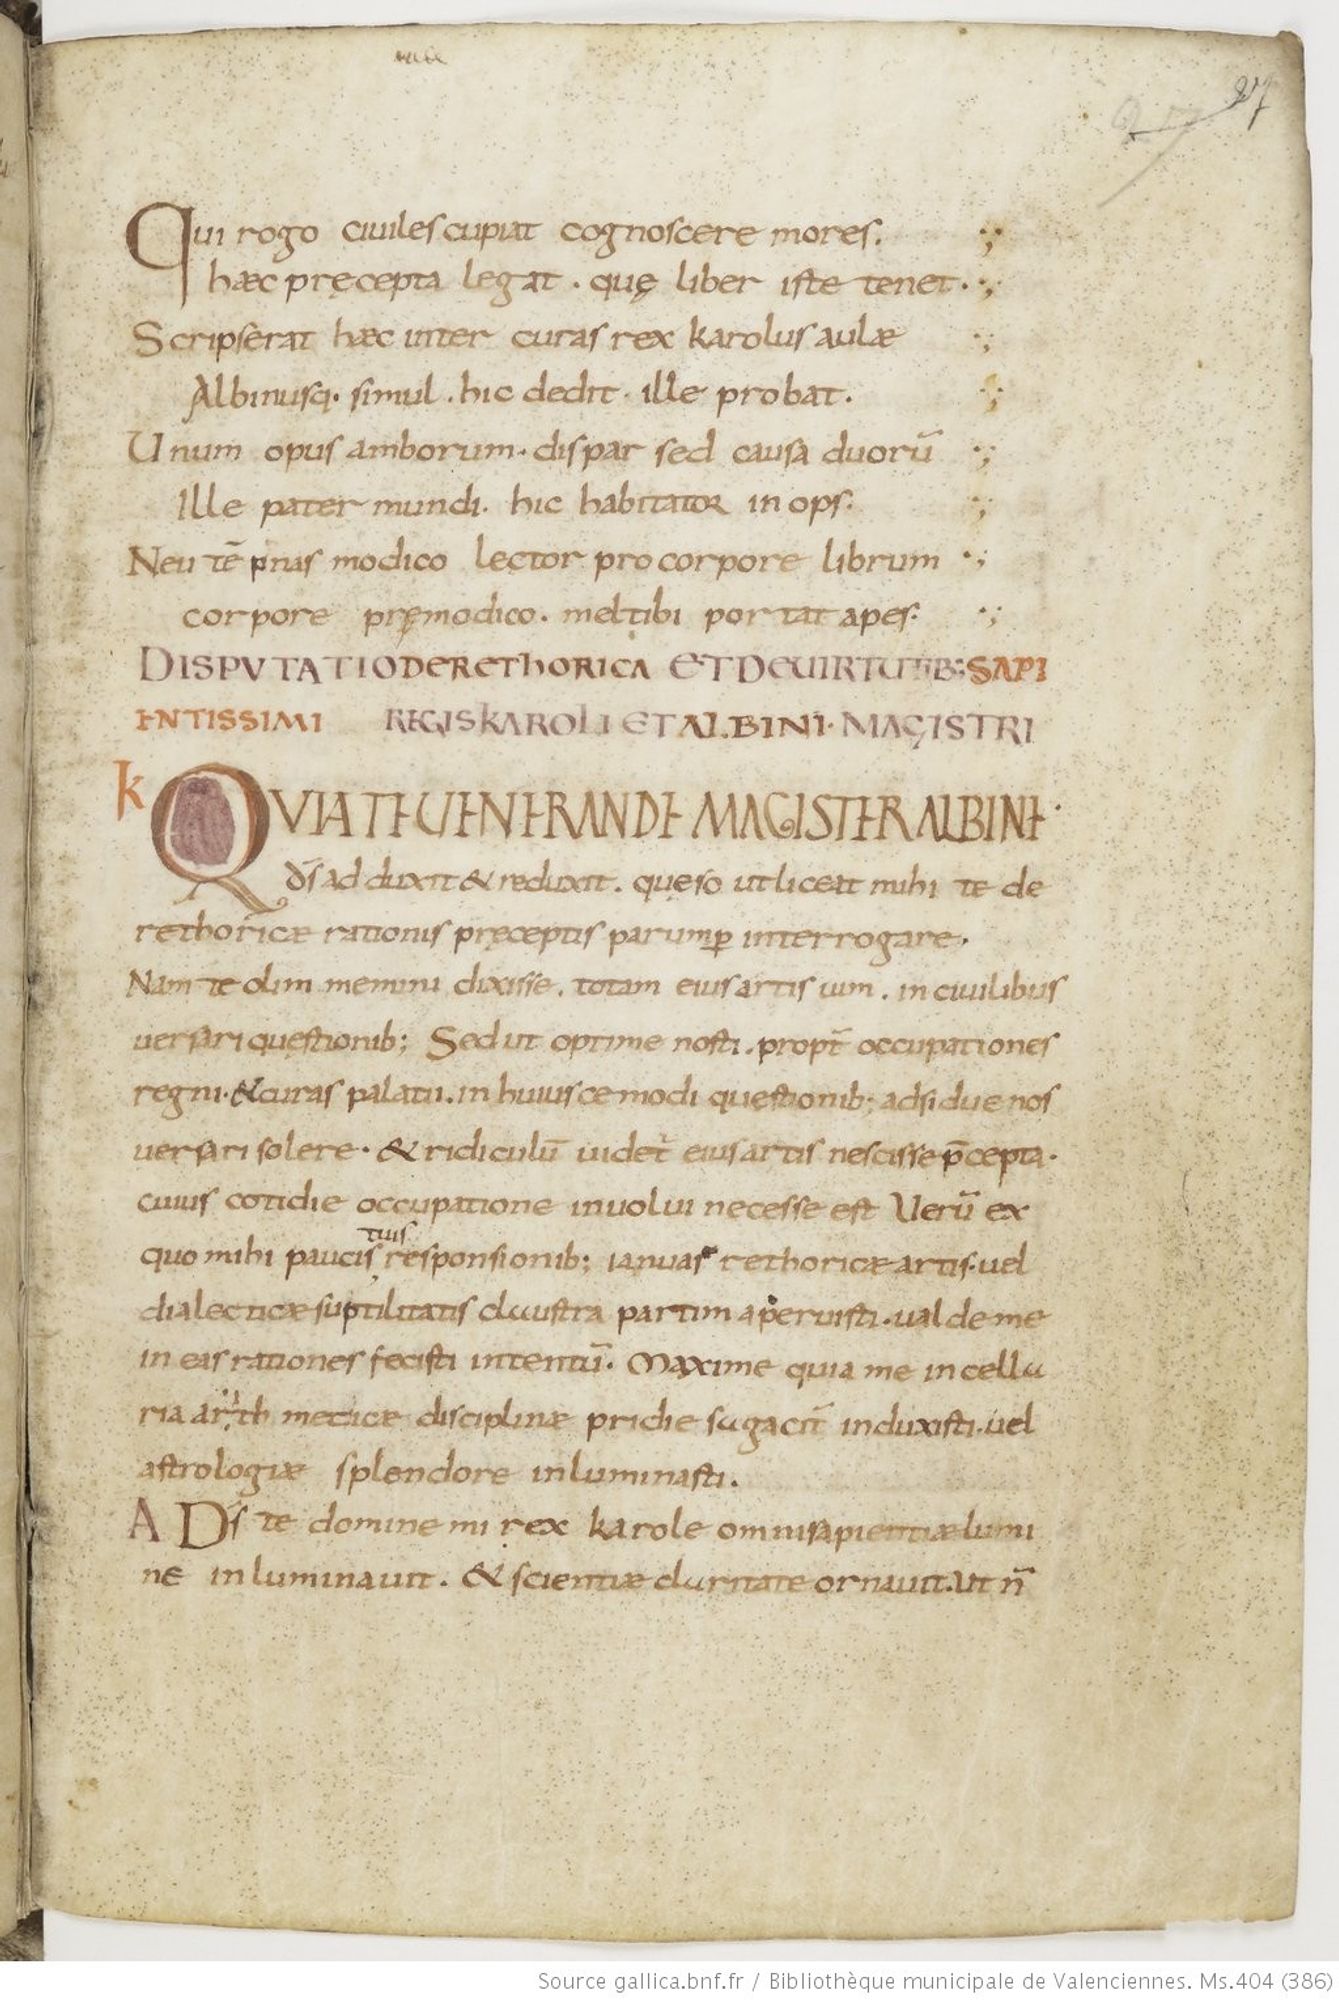 27
Qui rogo ciuiles cupiat cognoscere mores.
hæc pręcepta legat . quę liber iste tenet .
Scripserat hæc inter curas rex karolus aulæ
Albinusq;. simul . hic dedit . ille probat .
Unum opus amborum . dispar sed causa duorū
Ille pater mundi . hic habitator inops .
Neu tē pnas modico lector pro corpore librum
corpore pręmodico . mel tibi portat apes .
DISPVTATIO DE RETHORICA ET DE UIRTUTIB; SAPI
ENTISSIMI REGIS KAROLI ET ALBINI MAGISTRI
K QVIA TE UENERANDE MAGISTER ALBINE
d̄s adduxit & reduxit . quęso ut liceat mihi te de
rethoricæ rationis pręceptis parump̱ interrogare .
Nam te olim memini dixisse . totam eius artis uim . in ciuilibus
uersari questionib; Sed ut optime nosti . propt̄ occupationes
regni . & curas palatii . in huiuscemodi questionib; adsidue nos
uersari solere . & ridiculū uidet̄ eius artis nescisse p̄cepta .
cuius cotidie occupatione inuolui necesse est Uerū ex
quo mihi paucis tuis responsionib; ianuas rethoricæ artis . uel
dialecticæ suptilitatis claustra partim aperuisti . ualde me
in eas rationes fecisti intentū . Maxime quia me in cella
ria arithmeticæ disciplinæ pridie sagacit̄ induxisti . uel
astrologiæ splendore inluminasti .
A D̄s te domine mi rex karole omni sapientiæ lumi
ne inluminauit . & scientiæ claritate ornauit . ut n̄
Source gallica.bnf.fr / Bibliothèque municipale de Valenciennes. Ms.404 (386)